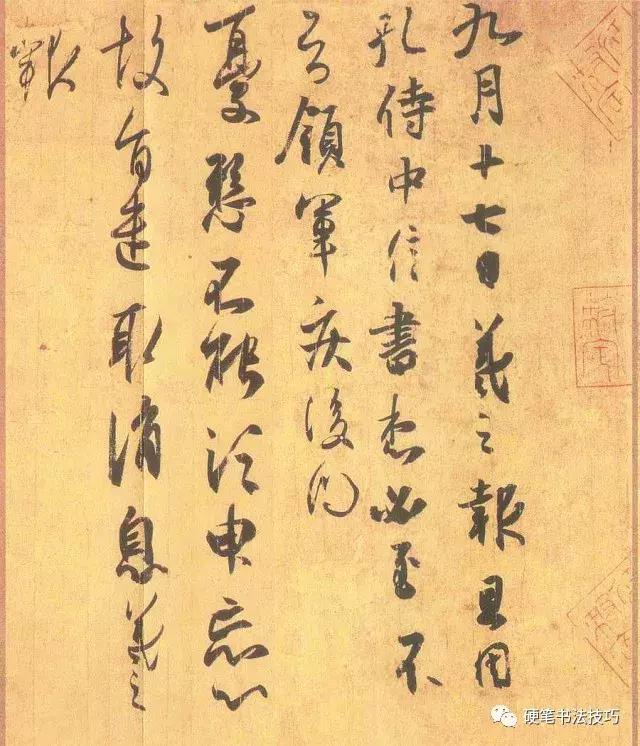 九月十七日羲之報且因
孔侍中信書想必至不
知領軍疾後問
憂懸不能須臾忘心
故旨遣取消息羲之
報
硬笔书法技巧